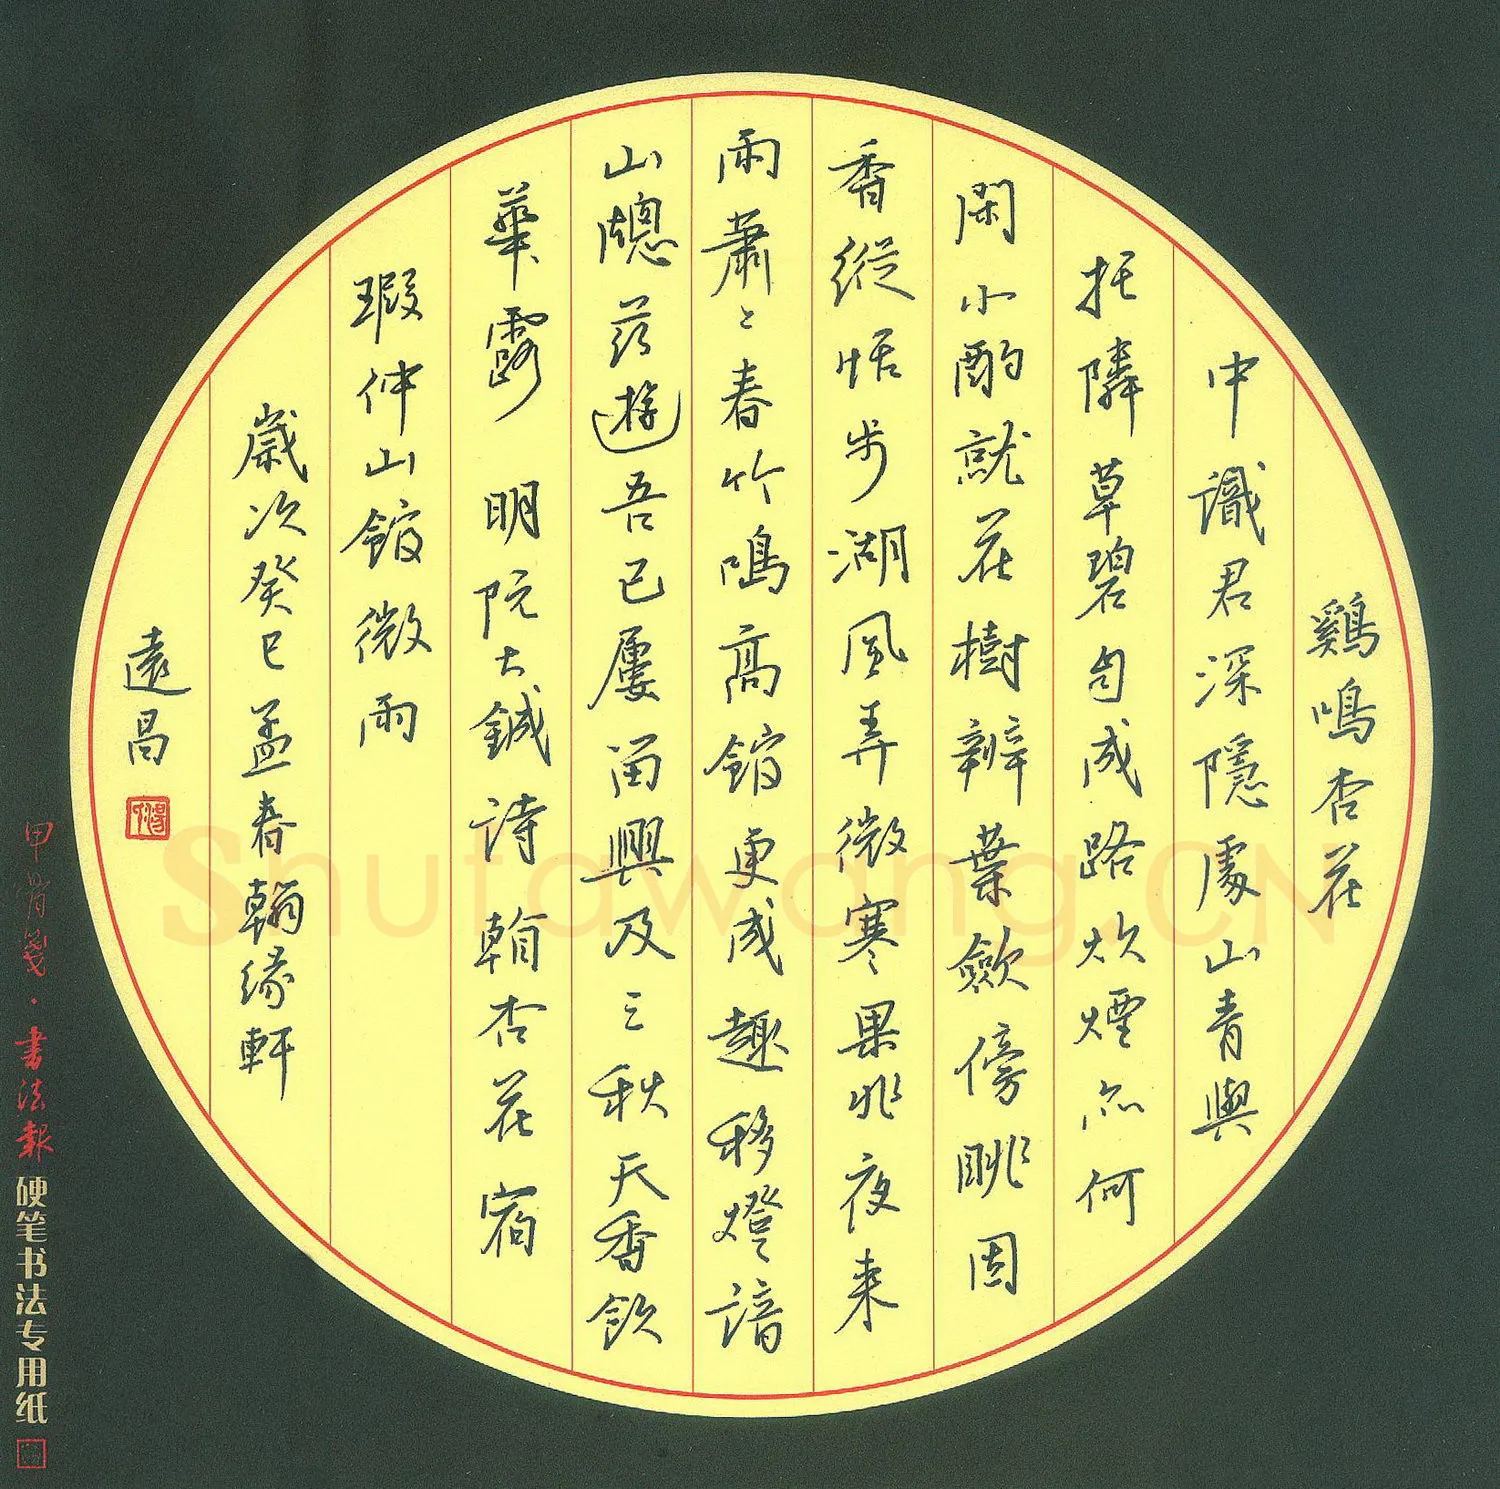 鷄鳴杏花
中識君深隱處山青與
托隣草碧自成路炊煙亦何
閑小酌就花樹辨葉斂傍眺因
香縱恬步湖風弄微寒果非夜来
雨蕭〻春竹鳴高館更成趣移燈諳
山牕茲遊吾已屢留興及三秋天香飲
華露 明阮大鋮詩翰杏花宿
瑕仲山館微雨
歲次癸巳孟春翰緣軒
遠昌
甲骨箋·書法報硬笔书法专用纸
Shufawang.CN